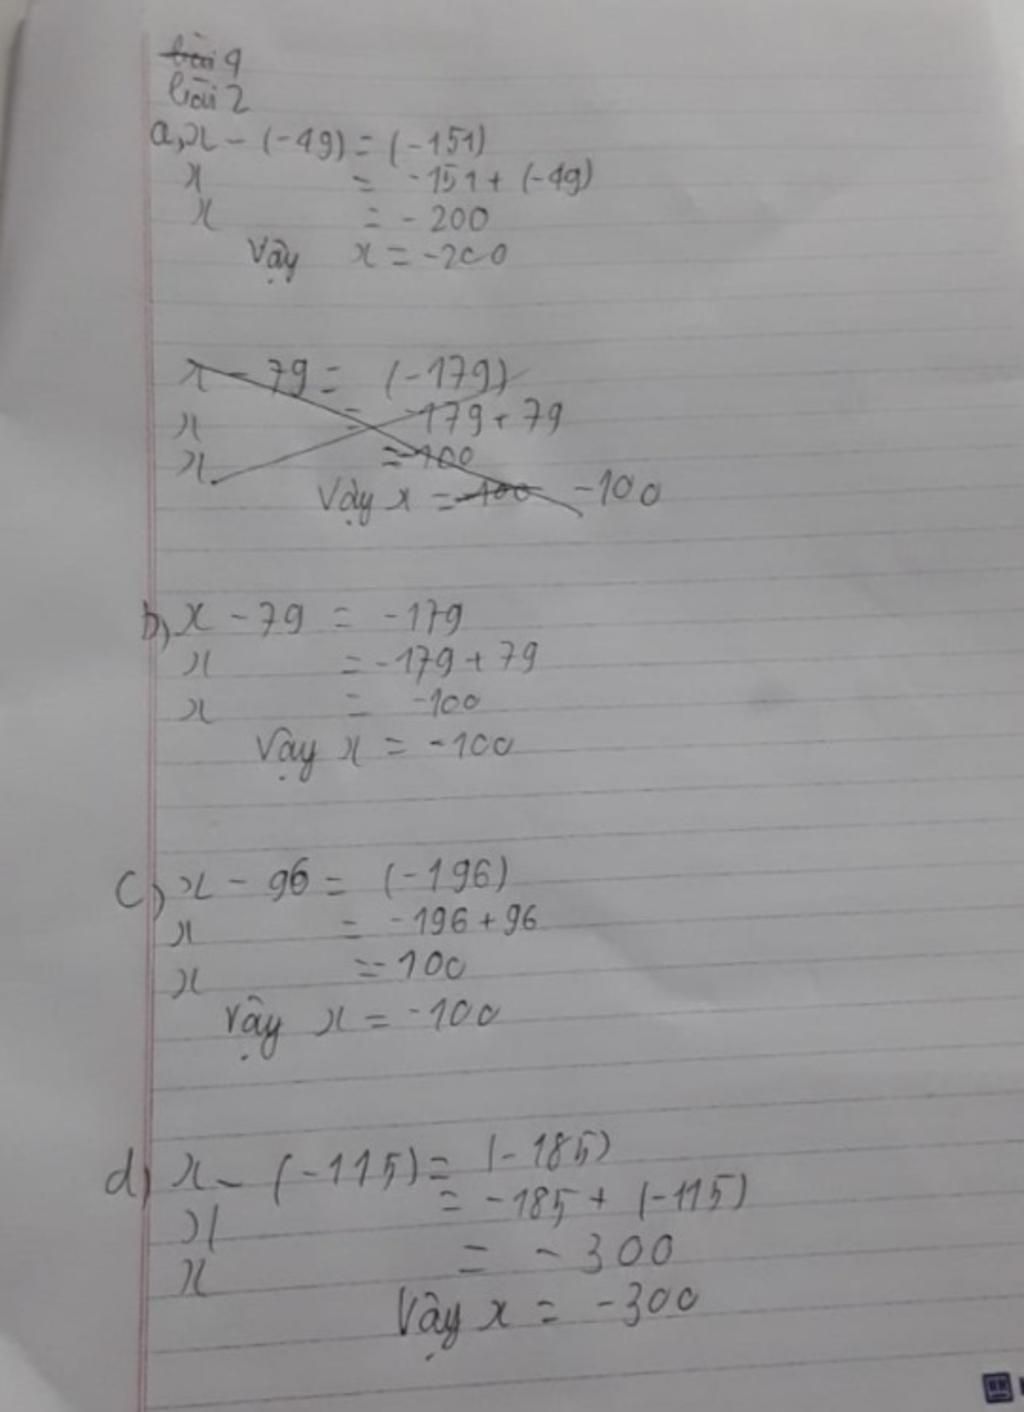 bài 1
bài 2
a, x - (-49) = (-151)
x = -151 + (-49)
x = -200
Vậy x = -200
x - 79 = (-179)
x = -179 + 79
x = -100
Vậy x = -100 -100
b, x - 79 = -179
x = -179 + 79
x = -100
Vậy x = -100
c) x - 96 = (-196)
x = -196 + 96
x = -100
Vậy x = -100
d) x - (-115) = (-185)
x = -185 + (-115)
x = -300
Vậy x = -300